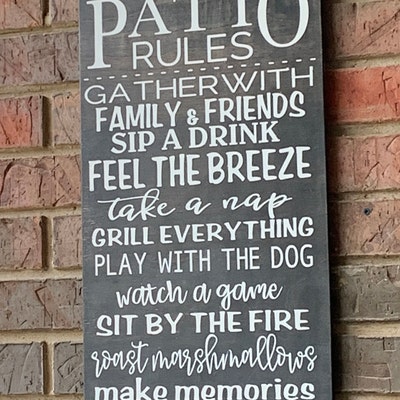 PATIO
RULES
GATHER WITH
FAMILY & FRIENDS
SIP A DRINK
FEEL THE BREEZE
take a nap
GRILL EVERYTHING
PLAY WITH THE DOG
watch a game
SIT BY THE FIRE
roast marshmallows
make memories